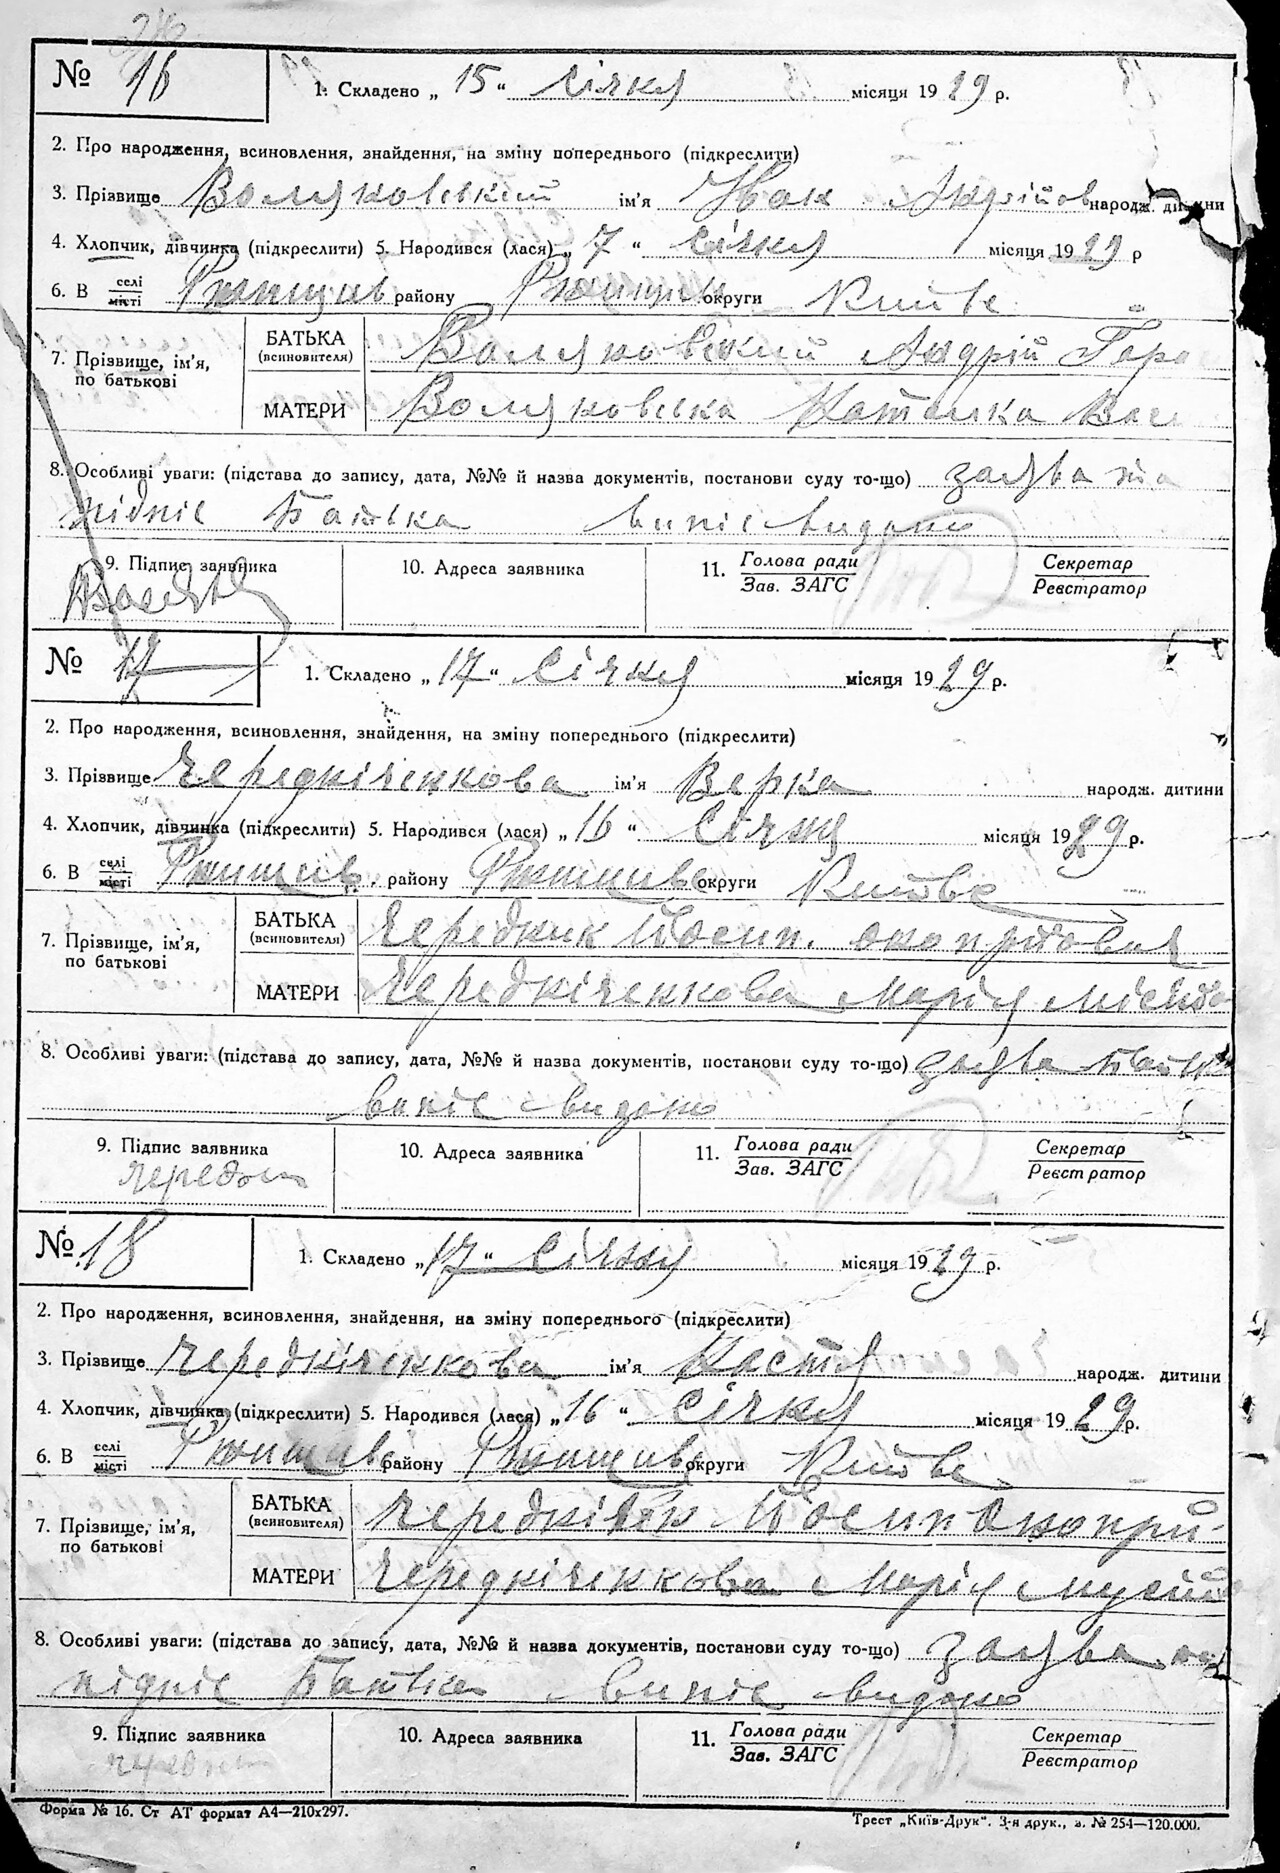 № 16 1. Складено „ 15 " Січня місяця 19 29 р.
2. Про народження, всиновлення, знайдення, на зміну попереднього (підкреслити)
3. Прізвище Воляковський ім'я Іван Андрійов народж. дитини
4. Хлопчик, дівчинка (підкреслити) 5. Народився (лася) „ 7 " Січня місяця 19 29 р
6. В селі місті Ржищів району Ржищів округи Київ
7. Прізвище, ім'я, по батькові
БАТЬКА (всиновителя) Воляковський Андрій
МАТЕРИ Воляковська Наталка Вас
8. Особливі уваги: (підстава до запису, дата, №№ й назва документів, постанови суду то-що) заява та
підпис Батька випис видано
9. Підпис заявника 10. Адреса заявника 11. Голова ради Зав. ЗАГС Секретар Реєстратор
№ 17 1. Складено „ 17 " Січня місяця 19 29 р.
2. Про народження, всиновлення, знайдення, на зміну попереднього (підкреслити)
3. Прізвище Череднiченкова ім'я Вєрка народж. дитини
4. Хлопчик, дівчинка (підкреслити) 5. Народився (лася) „ 16 " Січня місяця 19 29 р.
6. В селі місті Ржищів району Ржищів округи Київ
7. Прізвище, ім'я, по батькові
БАТЬКА (всиновителя) Йосип
МАТЕРИ Череднiченкова Марія
8. Особливі уваги: (підстава до запису, дата, №№ й назва документів, постанови суду то-що) заява
випис видано
9. Підпис заявника 10. Адреса заявника 11. Голова ради Зав. ЗАГС Секретар Реєстратор
№ 18 1. Складено „ 17 " Січня місяця 19 29 р.
2. Про народження, всиновлення, знайдення, на зміну попереднього (підкреслити)
3. Прізвище Череднiченкова ім'я Настя народж. дитини
4. Хлопчик, дівчинка (підкреслити) 5. Народився (лася) „ 16 " Січня місяця 19 29 р.
6. В селі місті Ржищів району Ржищів округи Київ
7. Прізвище, ім'я, по батькові
БАТЬКА (всиновителя) Йосип
МАТЕРИ Череднiченкова Марія Мусій
8. Особливі уваги: (підстава до запису, дата, №№ й назва документів, постанови суду то-що) заява
підпис Батька випис видано
9. Підпис заявника 10. Адреса заявника 11. Голова ради Зав. ЗАГС Секретар Реєстратор
Форма № 16. Ст АТ формат А4—210х297. Трест „Київ-Друк". 3-я друк., з. № 254—120.000.